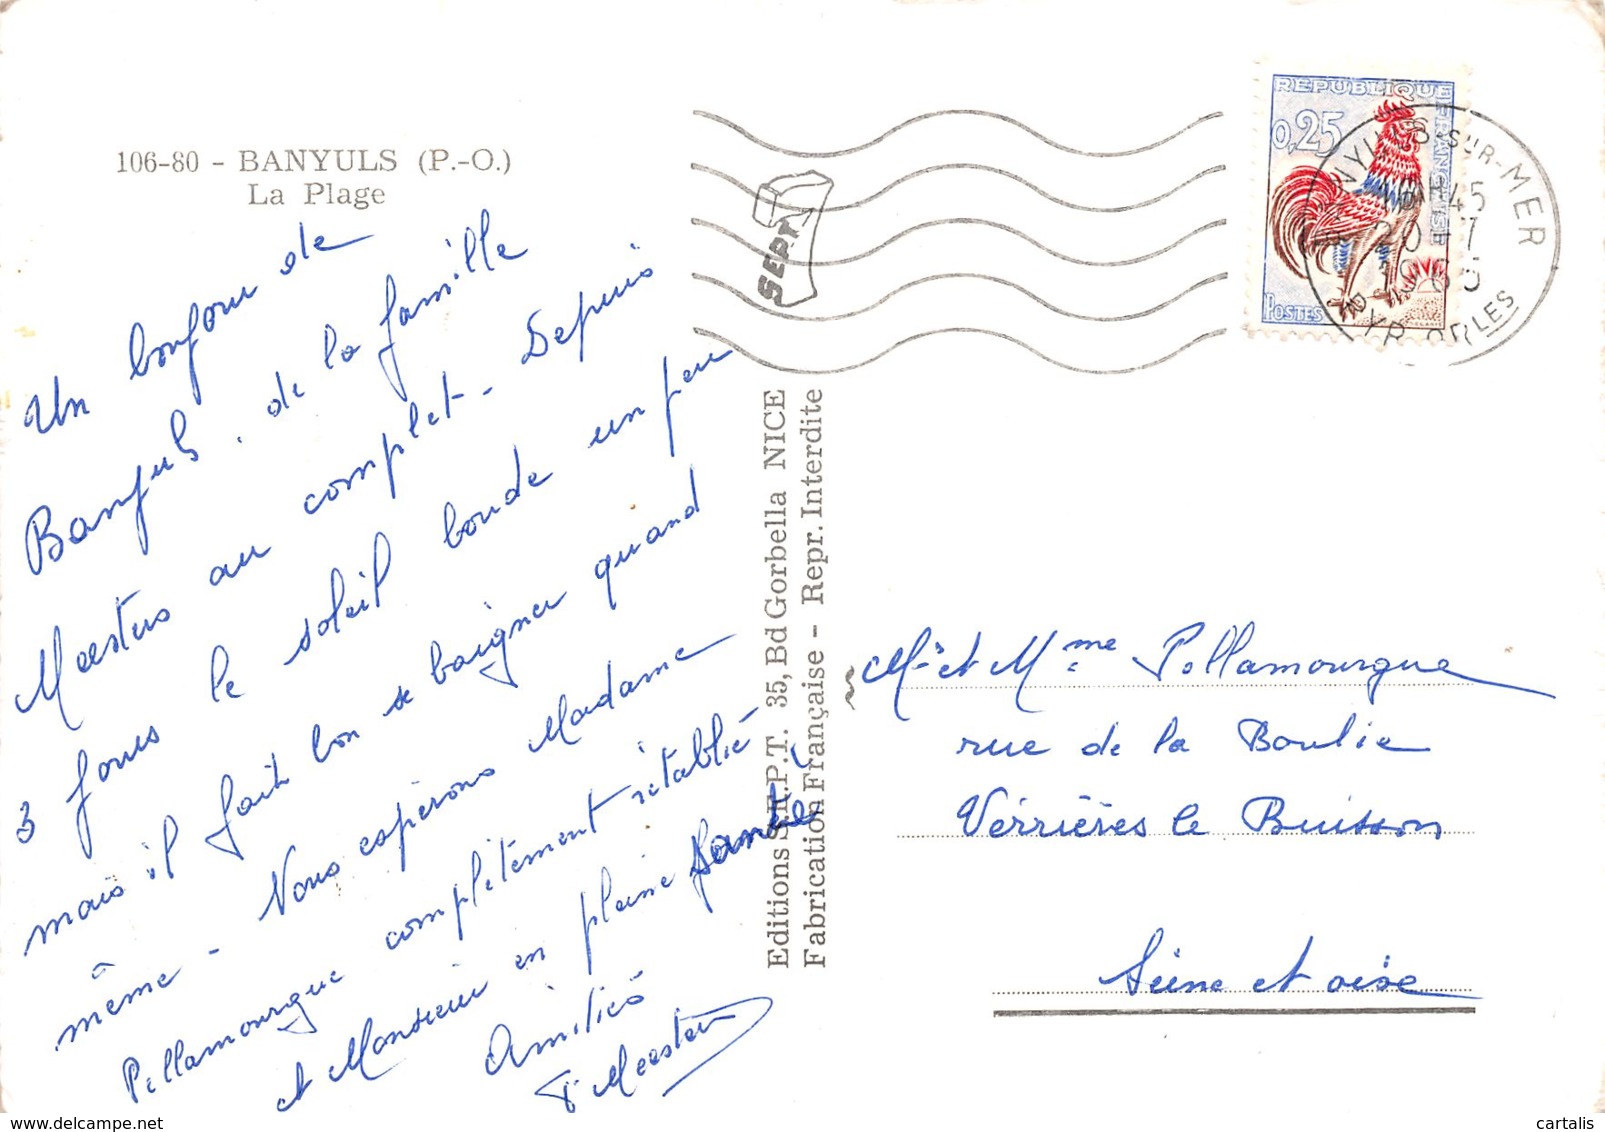 106-80 - BANYULS (P.-O.)
La Plage
Un bonjour de
Banyuls. de la famille
Meesters au complet - Depuis
3 jours le soleil boude un peu
mais il fait bon se baigner quand
même - Nous espérons Madame
Pillamourgue complètement rétablie
et Monsieur en pleine Santé
Amitiés
Meesters
Editions S.E.P.T. 35, Bd Gorbella NICE
Fabrication Française - Repr. Interdite
SEPT
REPUBLIQUE FRANCAISE
0,25
POSTES
SUR-MER
45
Mr et Mme Pillamourgue
rue de la Boulie
Verrières le Buisson
Seine et oise
www.delcampe.net
cartalis